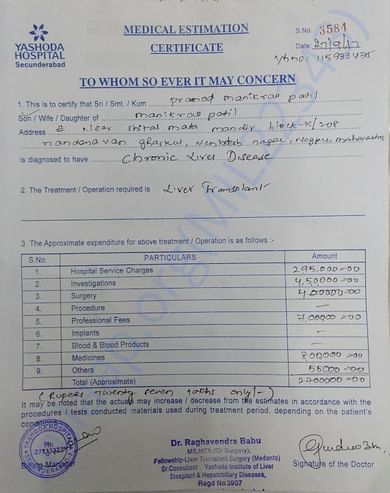 YASHODA
HOSPITAL
Secunderabad
MEDICAL ESTIMATION
CERTIFICATE
S No. 3584
Date 27/9/17
115933435
TO WHOM SO EVER IT MAY CONCERN
1. This is to certify that Sri / Smt. / Kum pramod manikrao patil
Son / Wife / Daughter of manikrao patil
Address # Near shital mata mandir block-K/208
nandanavan gharkul, Venkatesh nagar, Nagpur, maharashtra
is diagnosed to have Chronic Liver Disease
2. The Treatment / Operation required is Liver Transplant
3. The Approximate expenditure for above treatment / Operation is as follows :-
S.No. PARTICULARS Amount
1. Hospital Service Charges 295.000=00
2. Investigations 4,50000=00
3. Surgery 400000=00
4. Procedure —
5. Professional Fees 7,00000=00
6. Implants —
7. Blood & Blood Products —
8. Medicines 800000=00
9. Others 55000=00
Total (Approximate) 2700000=00
(Rupees Twenty Seven lakhs only/-)
It may be noted that the actuals may increase / decrease from the estimates in accordance with the
procedures / tests conducted materials used during treatment period, depending on the patient's
condition.
Dr. Raghavendra Babu
MS,MCH,(GI Surgery),
Fellowship-Liver Transplant Surgery (Medanta)
Sr.Consultant Yashoda Institute of Liver
Transplant & Hepatobiliary Diseases,
Regd No3907
Billing Manager
Signature of the Doctor